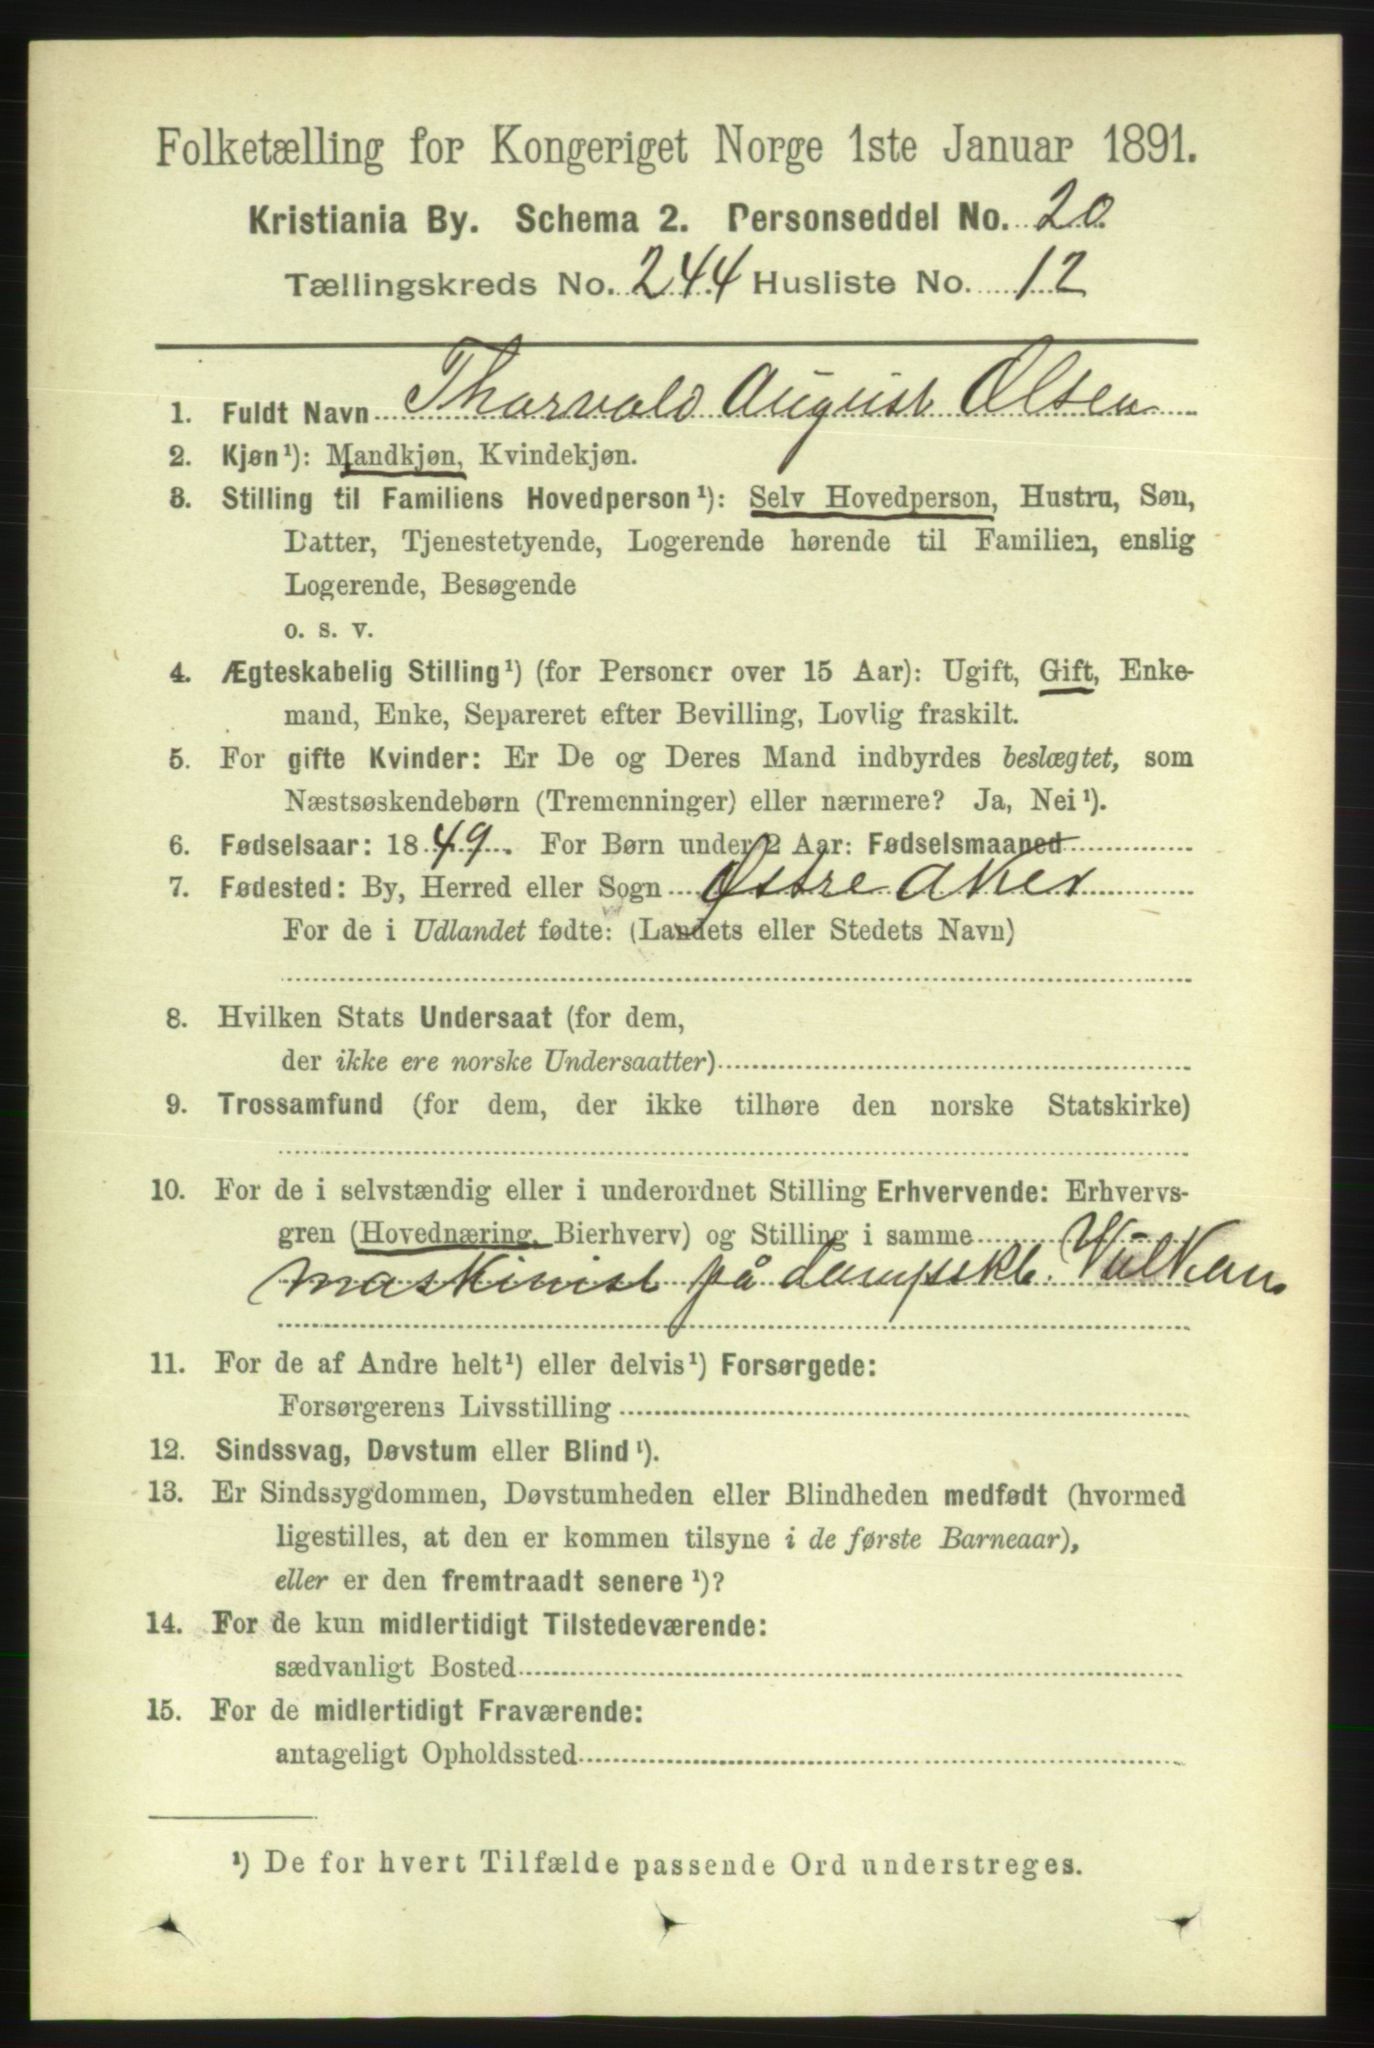 Folketælling for Kongeriget Norge 1ste Januar 1891.
Kristiania By. Schema 2. Personseddel No. 20
Tællingskreds No. 244 Husliste No. 12
1. Fuldt Navn Thorvald August Olsen
2. Kjøn¹): Mandkjøn, Kvindekjøn.
3. Stilling til Familiens Hovedperson¹): Selv Hovedperson, Hustru, Søn,
Datter, Tjenestetyende, Logerende hørende til Familien, enslig
Logerende, Besøgende
o. s. v.
4. Ægteskabelig Stilling¹) (for Personer over 15 Aar): Ugift, Gift, Enke-
mand, Enke, Separeret efter Bevilling, Lovlig fraskilt.
5. For gifte Kvinder: Er De og Deres Mand indbyrdes beslægtet, som
Næstsøskendebørn (Tremenninger) eller nærmere? Ja, Nei¹).
6. Fødselsaar: 1849. For Børn under 2 Aar: Fødselsmaaned
7. Fødested: By, Herred eller Sogn Østre Aker
For de i Udlandet fødte: (Landets eller Stedets Navn)
8. Hvilken Stats Undersaat (for dem,
der ikke ere norske Undersaatter)
9. Trossamfund (for dem, der ikke tilhøre den norske Statskirke)
10. For de i selvstændig eller i underordnet Stilling Erhvervende: Erhvervs-
gren (Hovednæring, Bierhverv) og Stilling i samme
maskinist på dampskb. Vulkan
11. For de af Andre helt¹) eller delvis¹) Forsørgede:
Forsørgerens Livsstilling
12. Sindssvag, Døvstum eller Blind¹).
13. Er Sindssygdommen, Døvstumheden eller Blindheden medfødt (hvormed
ligestilles, at den er kommen tilsyne i de første Barneaar),
eller er den fremtraadt senere¹)?
14. For de kun midlertidigt Tilstedeværende:
sædvanligt Bosted
15. For de midlertidigt Fraværende:
antageligt Opholdssted
¹) De for hvert Tilfælde passende Ord understreges.